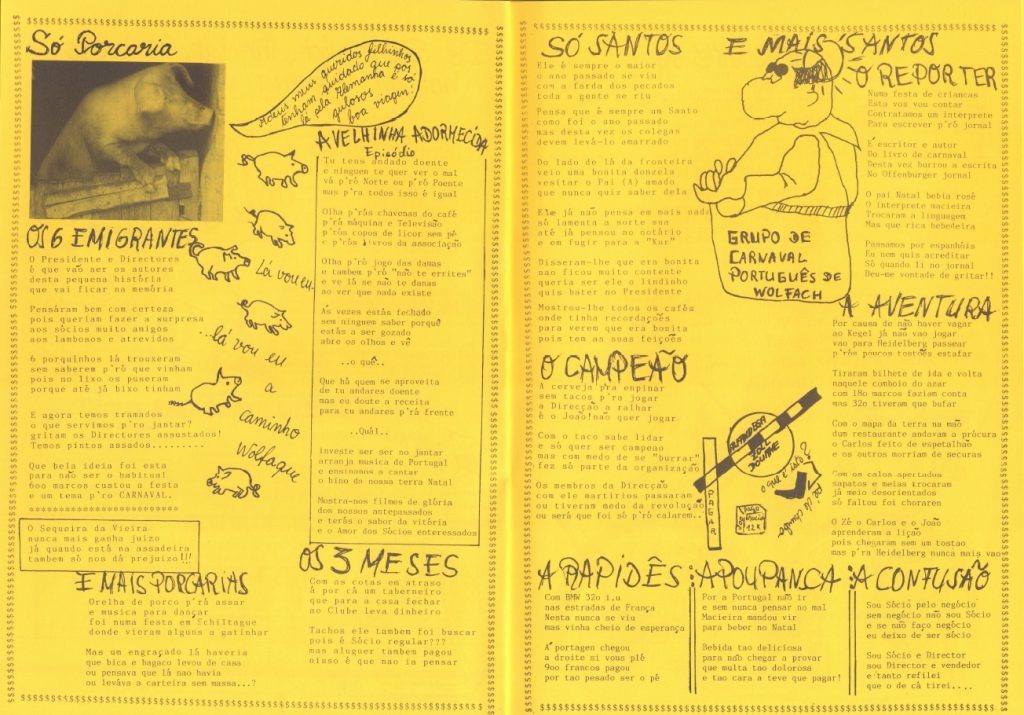 Só Porcaria
Adeus meus queridos filhinhos
tenham cuidado que pós
lá pela Alemanha é só
gulosos
boa viagem!
OS 6 EMIGRANTES
O Presidente e Directores
é que vão ser os autores
desta pequena história
que vai ficar na memória
Pensáram bem com certeza
pois queriam fazer a surpresa
aos sócios muito amigos
aos lambosos e atrevidos
6 porquinhos lá trouxeram
sem saberem p'rò que vinham
pois no lixo os puseram
porque até já bixo tinham
E agora temos tramados
o que servimos p'ro jantar?
gritam os Directores assustados!
Temos pintos assados.........
Que bela ideia foi esta
para não ser o habitual
6oo marcos custou a festa
e um tema p'ro CARNAVAL.
*************************
O Sequeira da Vieira
nunca mais ganha juizo
já quando está na assadeira
tambem só nos dá prejuizo!!!
E MAIS PORCARIAS
Orelha de porco p'rá assar
e musica para dançar
foi numa festa em Schiltague
donde vieram alguns a gatinhar
Mas um engraçado lá haveria
que bica e bagaco levou de casa
ou pensava que lá nao havia
ou levàva a carteira sem massa...?
Lá vou eu.
...lá vou eu
a
caminho
Wolfaque
A VELHINHA ADORMECIDA
Episódio
Tu tens andado doente
e ninguem te quer ver o mal
vá p'rò Norte ou p'rò Poente
mas p'ra todos isso é igual
Olha p'rás chavenas do café
p'rá máquina e Televisão
p'rós copos de licor sem pé
e p'rós livros da associação
Olha p'rò jogo das damas
e tambem p'rò "não te errites"
e ve lá se não te danas
ao ver que nada existe
As vezes estás fechado
sem ninguem saber porquê
estás a ser gozado
abre os olhos e vê
..o quê..
Que há quem se aproveita
de tu andares doente
mas eu doute a receita
para tu andares p'rá frente
..Quál..
Investe ser ser no jantar
arranja musica de Portugal
e ensinanos a cantar
o hino da nossa terra Natal
Mostra-nos filmes de glória
dom nossus antepassados
e terás o sabor da vitória
e o Amor dos Sócios enteressados
OS 3 MESES
Com as cotas em atraso
á por cá um taberneiro
que para a casa fechar
no Clube leva dinheiro
Tachos ele tambem foi buscar
pois é Sócio regular???
mas aluguer tambem pagou
nisso é que nao ia pensar
SÓ SANTOS
Ele é sempre o maior
o ano passado se viu
com a farda dos pecados
toda a gente se riu
Pensa que é sempre um Santo
como foi o ano passado
mas desta vez os colegas
devem levá-lo amarrado
Do lado de lá da fronteira
veio uma bonita donzela
vesitar o Pai (A) amado
que nunca quiz saber dela
Ele já não pensa em mais nada
só lamenta a sorte sua
até já pensou no notário
e em fugir para a "Kur"
Disseram-lhe que era bonita
nao ficou muito contente
queria ser ele o lindinho
quis bater no Presidente
Mostrou-lhe todos os cafés
onde tinha recordações
para verem que era bonita
pois tem as suas feições
O CAMPEÃO
A cerveja p'ra enpinar
sem tacos p'ra jogar
a Direcção a ralhar
é o João!não quer jogar
Com o taco sabe lidar
e só quer ser campeao
mas com medo de se "burrar"
fez só parte da organização
Os membros da Direcção
com ele martirios passaram
ou tiveram medo da revolução
ou será que foi só p'rò calarem..
E MAIS SANTOS
O REPORTER
Numa festa de criancas
Esta vos vou contar
Contratamos um interprete
Para escrever p'rò jornal
É escritor e autor
Do livro de carnaval
Desta vez burrou a escrita
No Offenburger jornal
O pai Natal bebia rosé
O interprete macieira
Trocaram a linguagem
Mas que rica bebedeira
Passamos por espanhóis
Eu nem quis acreditar
Só quando li no jornal
Deu-me vontade de gritar!!
GRUPO DE
CARNAVAL
PORTUGUÊS DE
WOLFACH
A AVENTURA
Por causa de não haver vagar
ao Kegel já não vao jogar
vao para Heidelberg passear
p'rós poucos tostões estafar
Tiraram bilhete de ida e volta
naquele comboio do azar
com 18o marcos faziam conta
mas 32o tiveram que bufar
Com o mapa da terra na mão
dum restaurante andavam a procura
o Carlos feito de espetalhão
e os outros morriam de securas
Com os calos apertados
sapatos e meias trocaram
já meio desorientados
só faltou foi chorarem
O Zé o Carlos e o João
aprenderam a lição
pois chegaram sem um tostao
mas p'ra Heidelberg nunca mais vao
ALFANDEGA
ZOLL
DOUANE
PAGAR
o que é isto?
A RAPIDÊS
Com BMW 32o i,u
nas estradas de França
Nesta nunca se viu
mas vinha cheio de esperança
A portagen chegou
a droite si vous plê
9oo francos pagou
por tao pesado ser o pê
A POUPANCA
Por a Portugal não ir
e sem nunca pensar no mal
Macieira mandou vir
para beber no Natal
Bebida tao deliciosa
para não chegar a provar
que multa tao dolorosa
e tao cara a teve que pagar!
A CONFUSÃO
Sou Sócio pelo negócio
sem negócio não sou Sócio
e se não faço negócio
eu deixo de ser sócio
Sou Sócio e Director
sou Director e vendedor
e tanto refilei
que o de cá tirei....